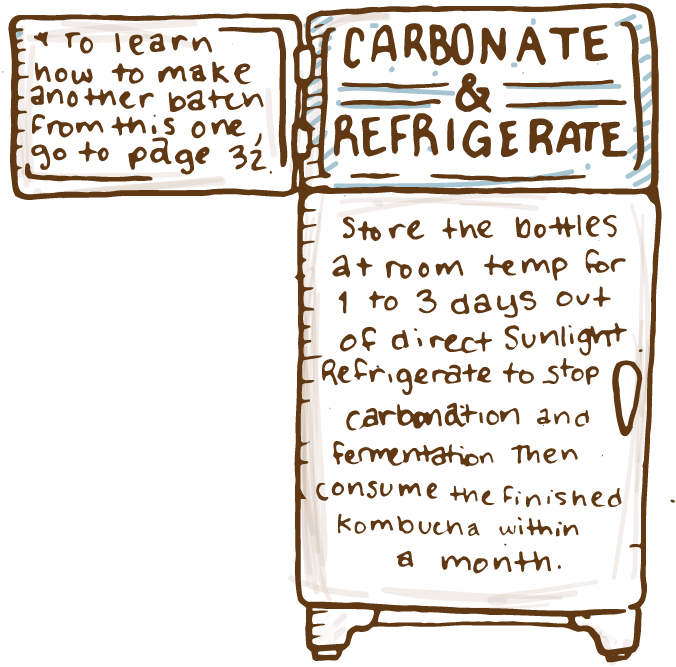 * To learn
how to make
another batch
from this one,
go to page 32.
CARBONATE
&
REFRIGERATE
Store the bottles
at room temp for
1 to 3 days out
of direct Sunlight.
Refrigerate to stop
carbonation and
fermentation Then
consume the finished
kombucha within
a month.